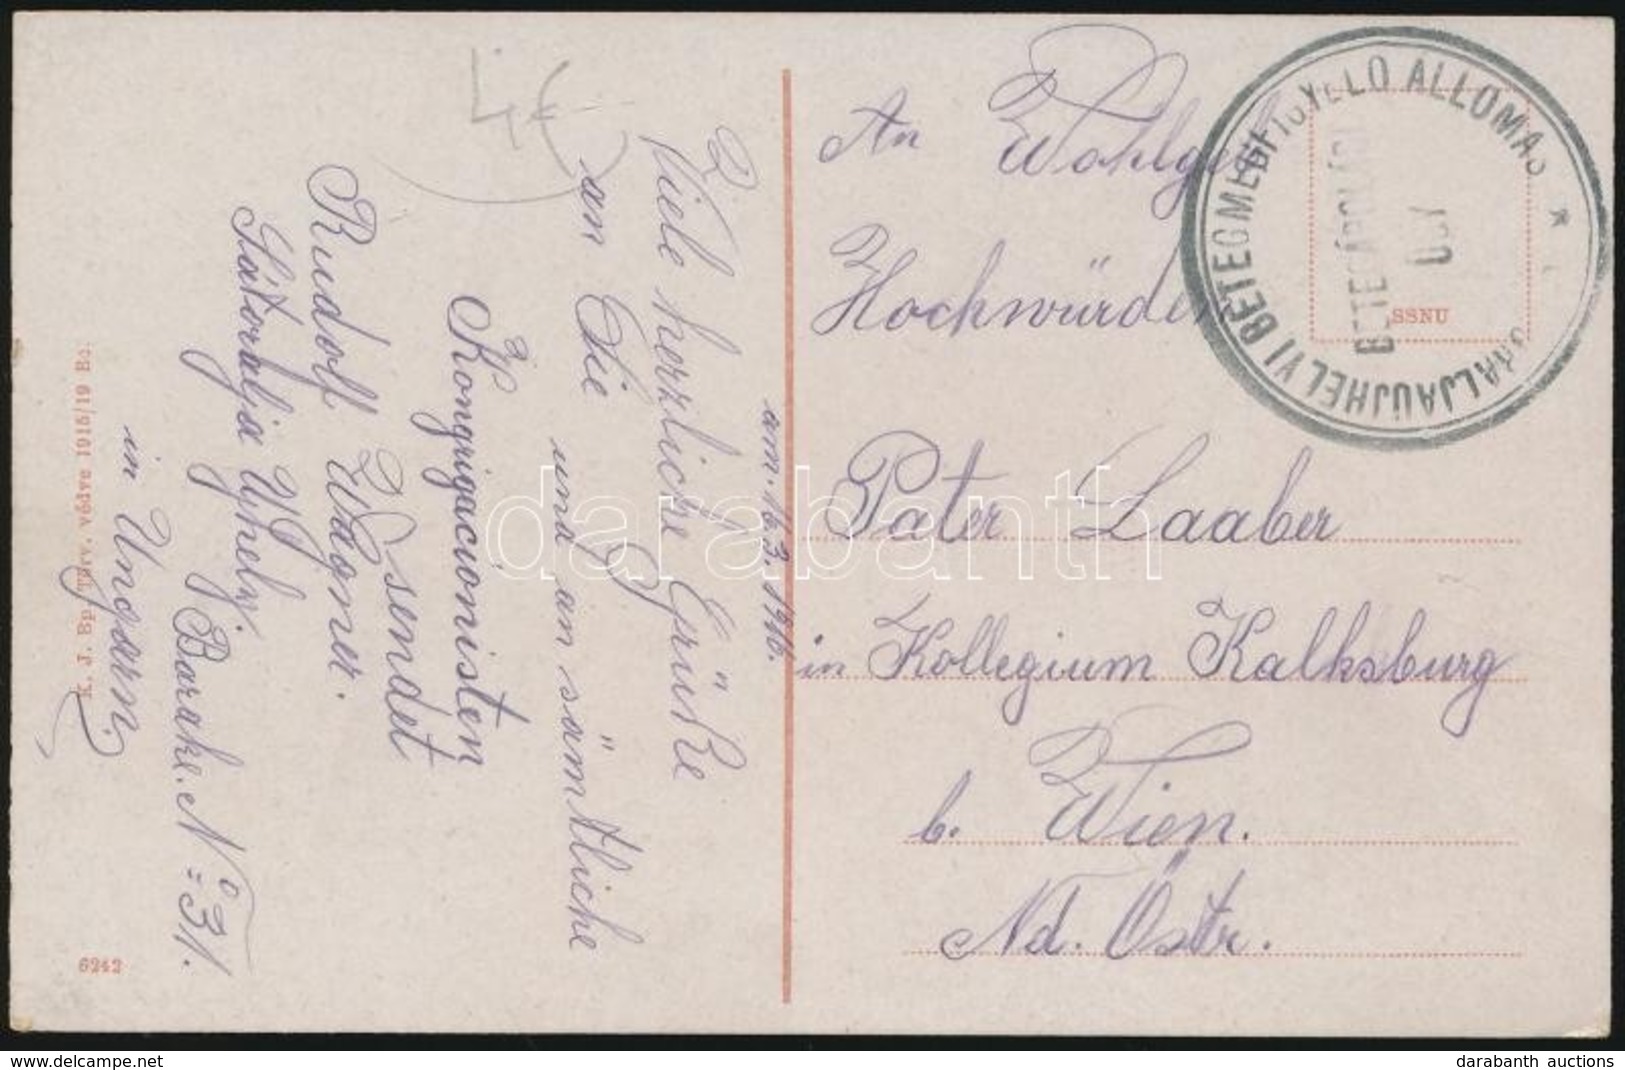 am. 16. 3. 1916.
Viele herzliche Grüße
an Sie und an sämtliche
Kongrigacionisten
sendet
Rudolf Wagner.
Sátoralja Ujhely.
Barake. No 31.
in Ungarn.
4€
K. J. Bp. Törv. védve 1915/19 Ec.
6242
An Wohlgeb
Hochwürden
Pater Laaber
in Kollegium Kalksburg
b. Wien.
Nd. Östr.
ALJAÚJHELYI BETEGMEGFIGYELŐ ÁLLOMÁS *
BETEGÁPOLÁSI
ÜGY
SSNU
darabanth
darabanth auctions